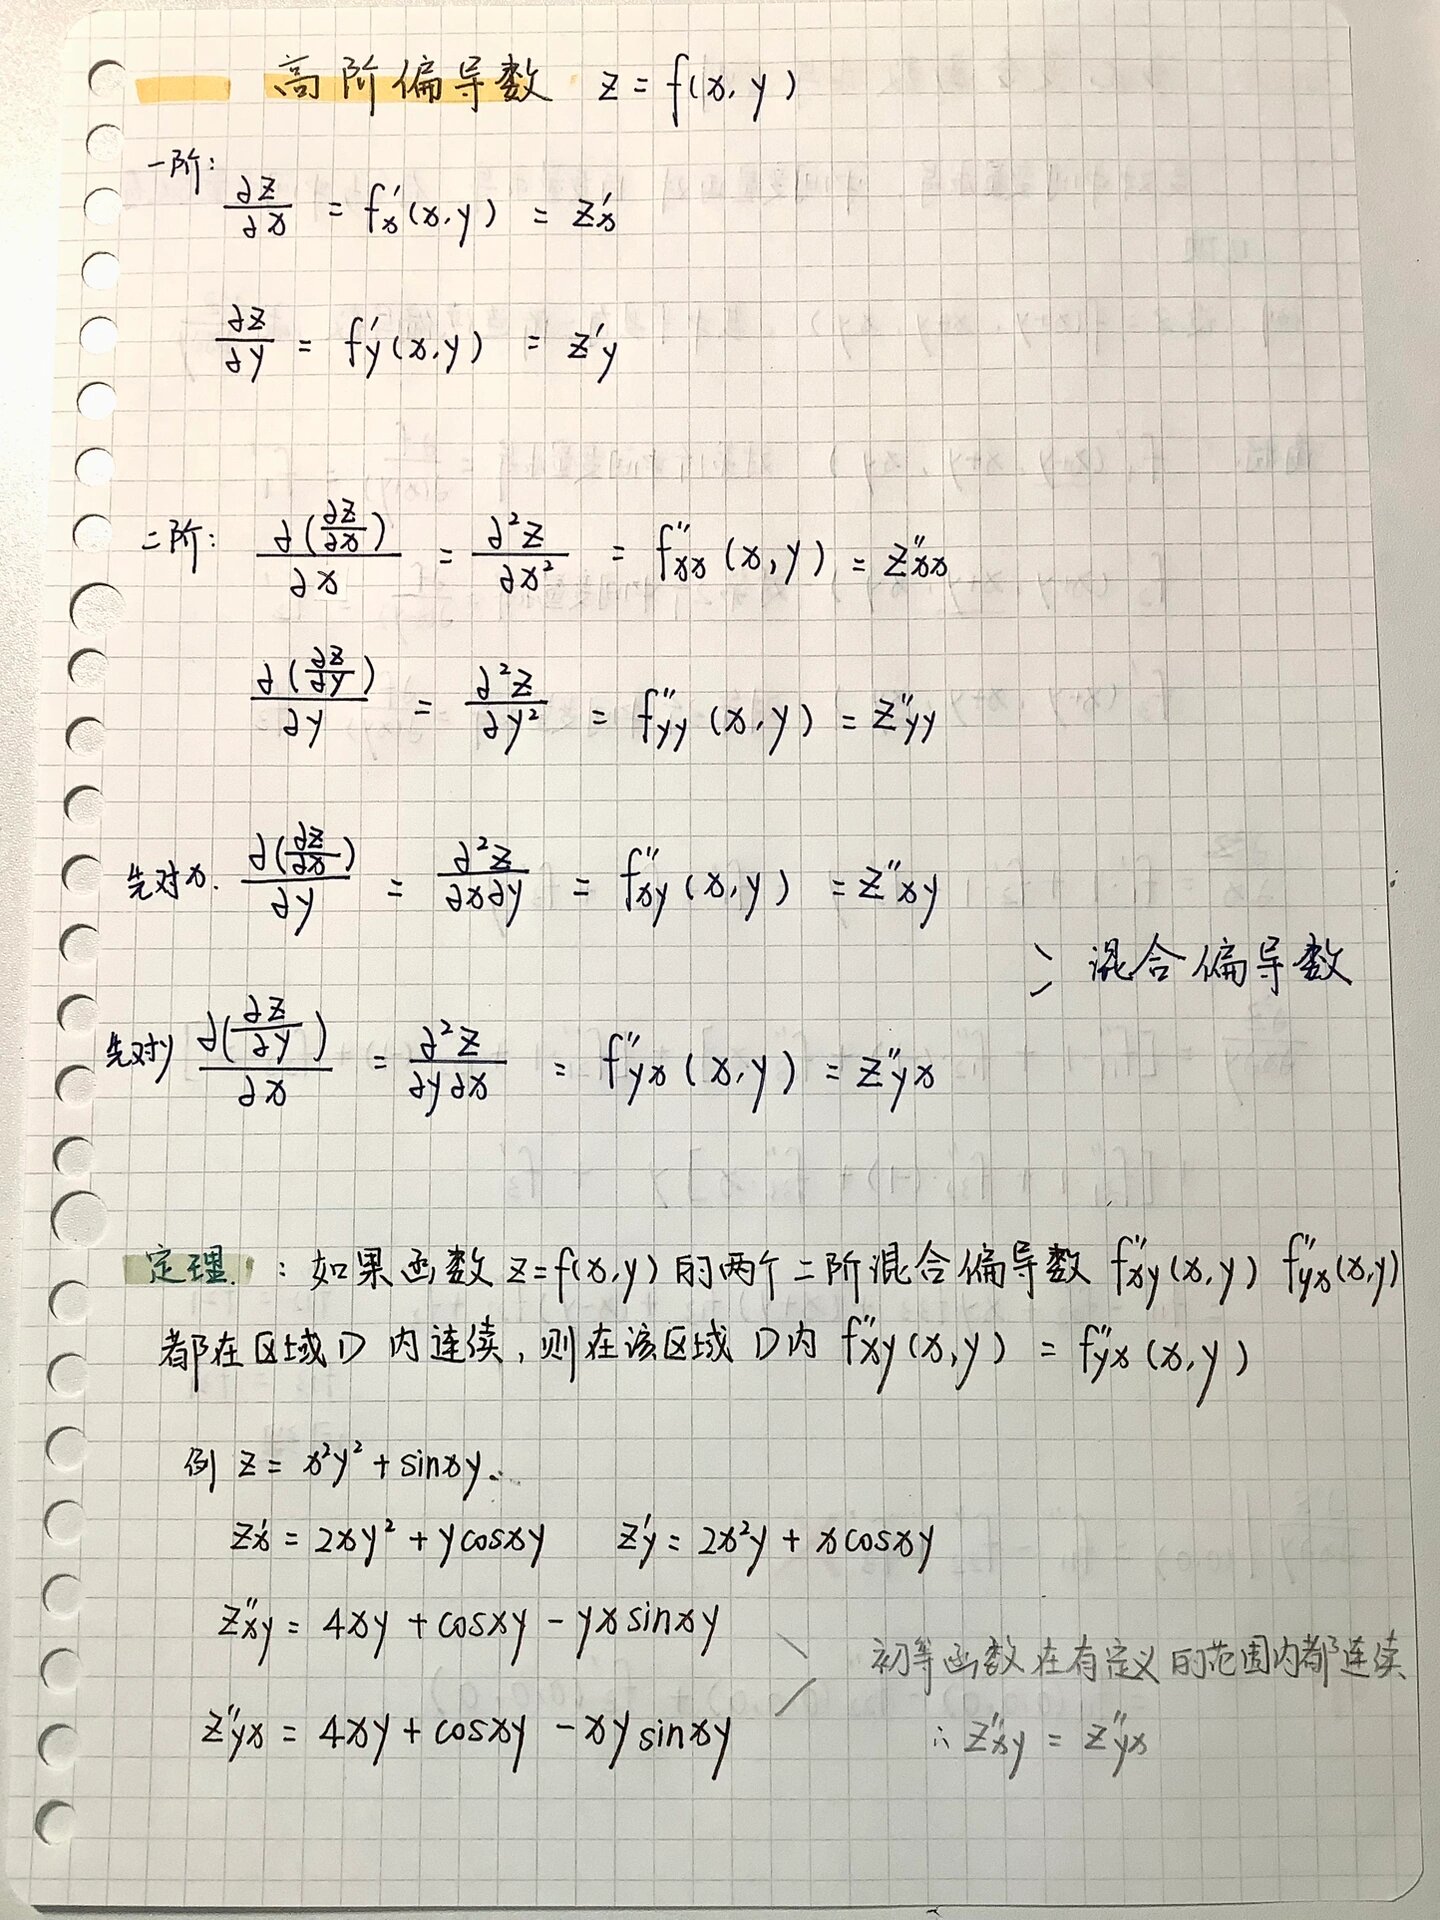 高阶偏导数 z = f(x, y)
一阶:
∂z/∂x = f'x(x, y) = z'x
∂z/∂y = f'y(x, y) = z'y
二阶: ∂(∂z/∂x)/∂x = ∂²z/∂x² = f''xx(x, y) = z''xx
∂(∂z/∂y)/∂y = ∂²z/∂y² = f''yy(x, y) = z''yy
先对x. ∂(∂z/∂x)/∂y = ∂²z/∂x∂y = f''xy(x, y) = z''xy
> 混合偏导数
先对y ∂(∂z/∂y)/∂x = ∂²z/∂y∂x = f''yx(x, y) = z''yx
定理. : 如果函数 z=f(x,y) 的两个二阶混合偏导数 f''xy(x,y) f''yx(x,y)
都在区域D内连续, 则在该区域D内 f''xy(x,y) = f''yx(x,y)
例 z = x²y² + sinxy.
z'x = 2xy² + ycosxy z'y = 2x²y + xcosxy
z''xy = 4xy + cosxy - yxsinxy
初等函数在有定义的范围内都连续
z''yx = 4xy + cosxy - xysinxy
∴ z''xy = z''yx